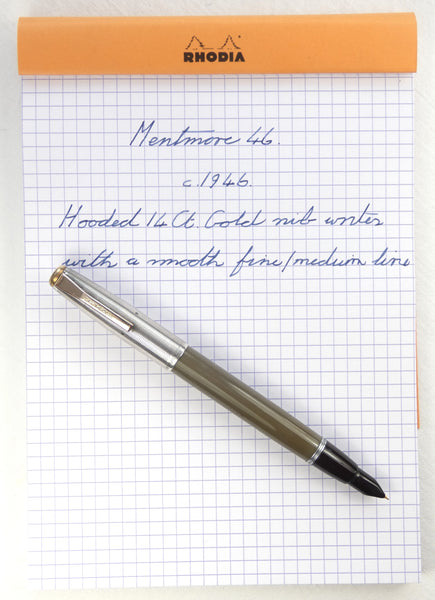 RHODIA
Mentmore 46.
c.1946.
Hooded 14 Ct. Gold nib writes
with a smooth fine/medium line